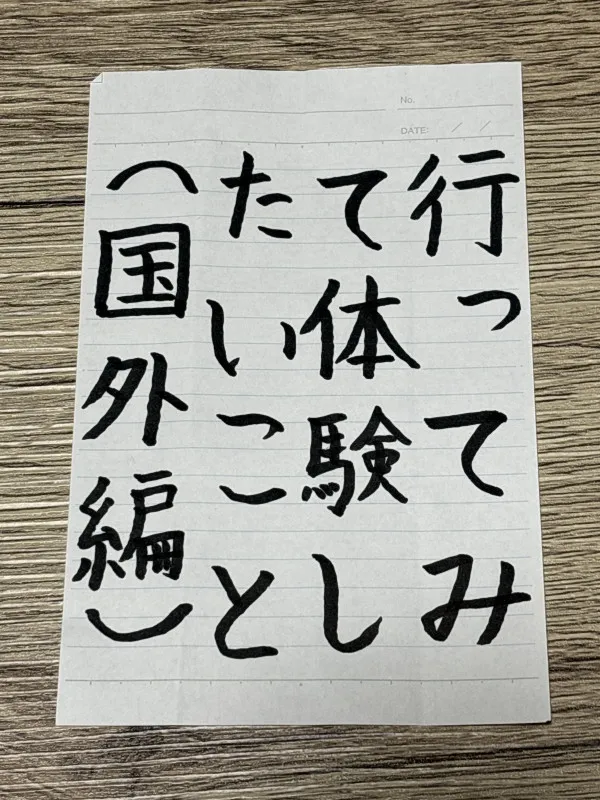 No.
DATE: / /
行ってみ
て体験し
たいこと
（国外編）